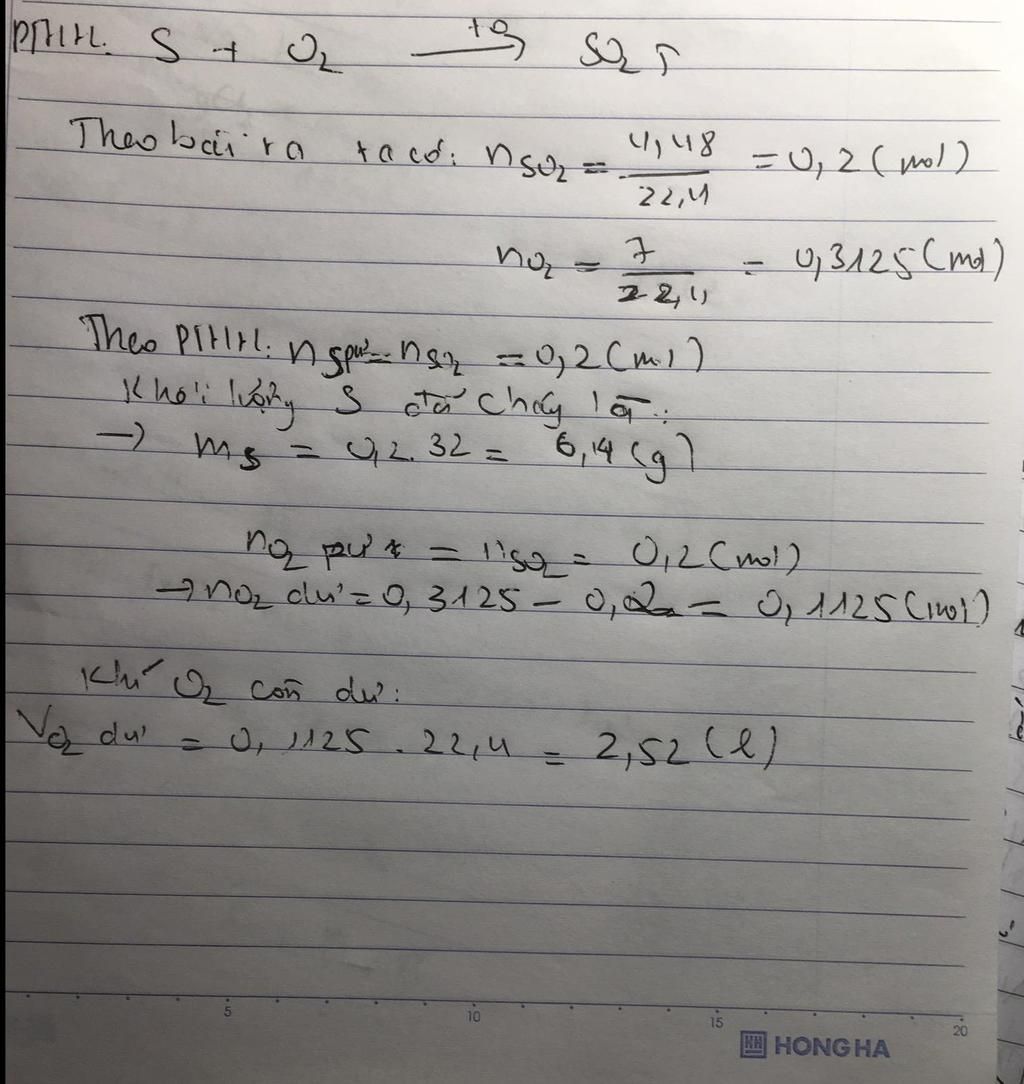 PTHH: S + O2 →(t°) SO2 ↑
Theo bài ra ta có: nSO2 = 4,48/22,4 = 0,2 (mol)
nO2 = 7/22,4 = 0,3125 (mol)
Theo PTHH: nS pư = nSO2 = 0,2 (mol)
Khối lượng S đã cháy là:
→ mS = 0,2.32 = 6,4 (g)
nO2 pư = nSO2 = 0,2 (mol)
→ nO2 dư = 0,3125 - 0,2 = 0,1125 (mol)
Khí O2 còn dư:
VO2 dư = 0,1125 . 22,4 = 2,52 (l)
5 10 15 20
HH HONG HA